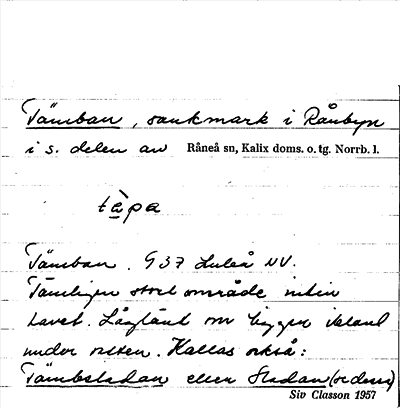 Tämban, sankmark i Rånbyn
i s. delen av Råneå sn, Kalix doms. o. tg. Norrb. l.
tɑ̀pa
Tämban. G 37 Luleå NV.
Tämligen stort område intin
havet. Låglänt och ligger ibland
under vatten. Kallas också:
Tämbsladan eller Sladan
Siv Classon 1957